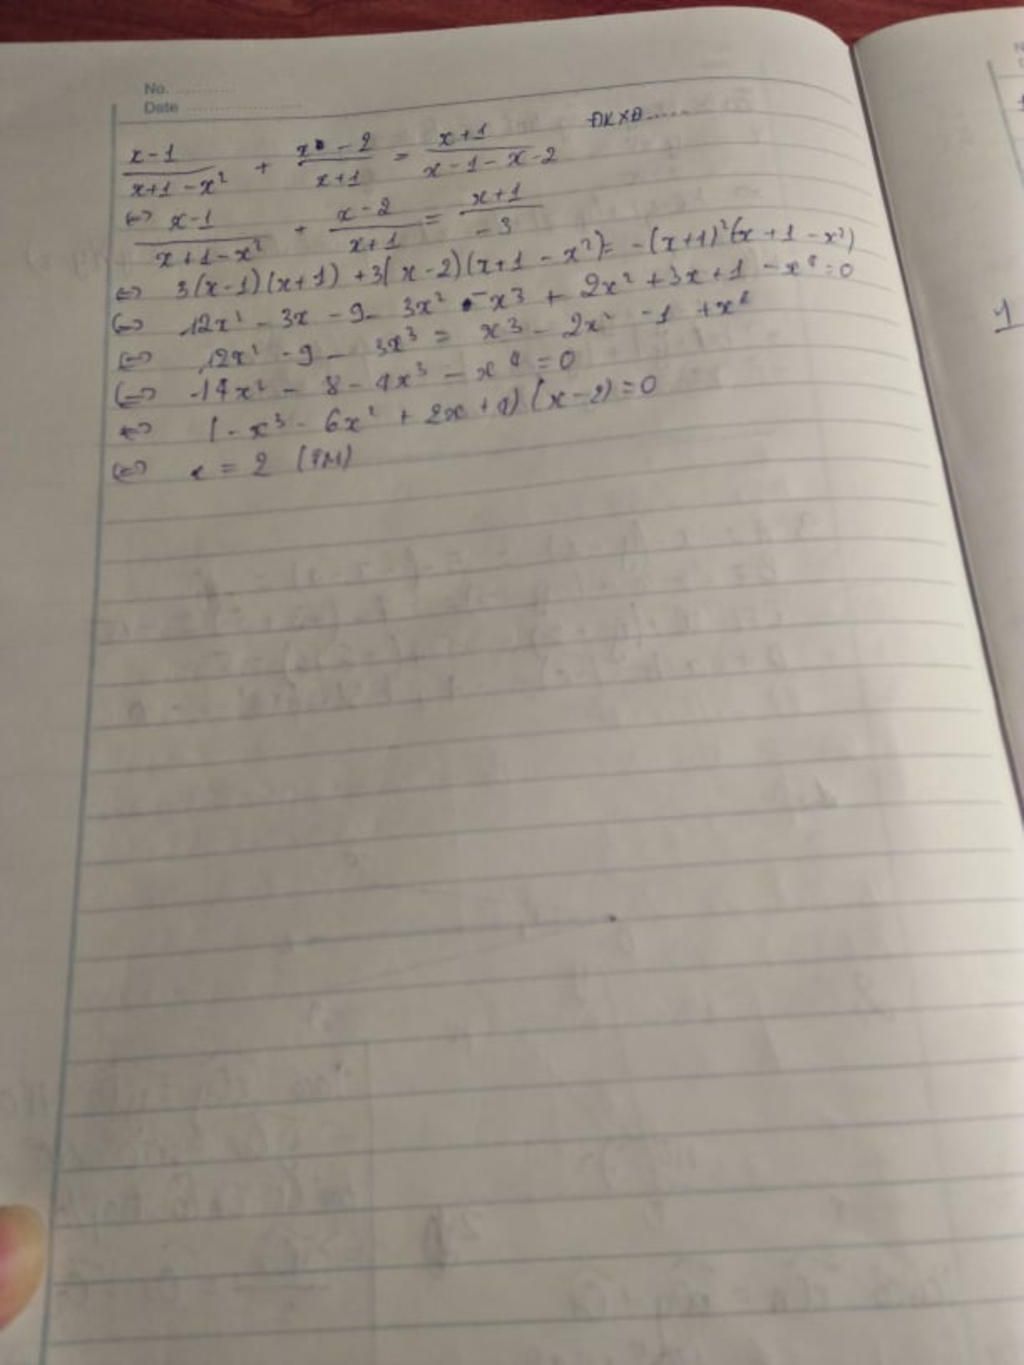 No. ............
Date ....................
x-1/(x+1-x²) + (x-2)/(x+1) = (x+1)/(x-1-x-2) ĐKXĐ......
⇔ (x-1)/(x+1-x²) + (x-2)/(x+1) = (x+1)/-3
⇔ 3(x-1)(x+1) + 3(x-2)(x+1-x²) = -(x+1)²(x+1-x²)
⇔ 12x² - 3x - 9 - 3x² - x3 + 2x² + 3x + 1 - x⁴ = 0
⇔ 12x² - 9 - 3x³ = x3 - 2x² - 1 + x⁴
⇔ -14x² - 8 - 4x³ - x⁴ = 0
⇔ (-x³ - 6x² + 2x + 4)(x-2) = 0
⇔ x = 2 (TM)
1